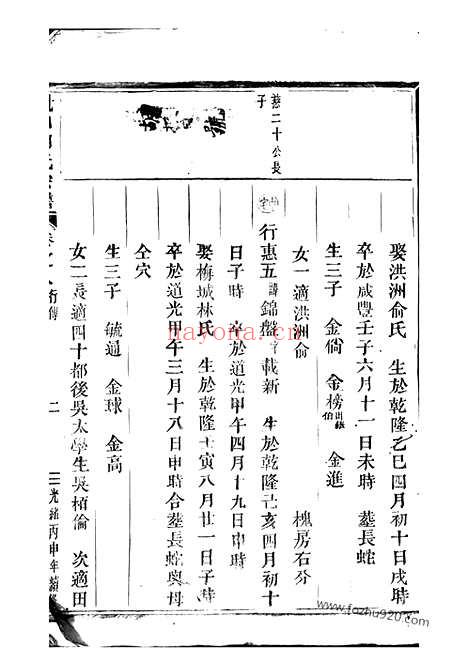 娶洪洲俞氏 生於乾隆乙巳四月初十日戌時
卒於咸豐壬子六月十一日未時 塟長蛇
生三子 金倘 金榜出繼伯 金進
女一適洪洲俞
槐房石芥
慈二十公長子
行惠五諱錦盤字載新 生於乾隆己亥四月初十
日子時 卒於道光甲午四月十九日申時
娶梅城林氏 生於乾隆壬寅八月廿一日子時
卒於道光甲午三月十八日申時合塟長蛇與母
仝穴
生三子 毓通 金球 金高
女二長適四十都後吳太學生吳栢倫 次適田
二
光緒丙申年續修
hayona.com
www.fozhu920.com